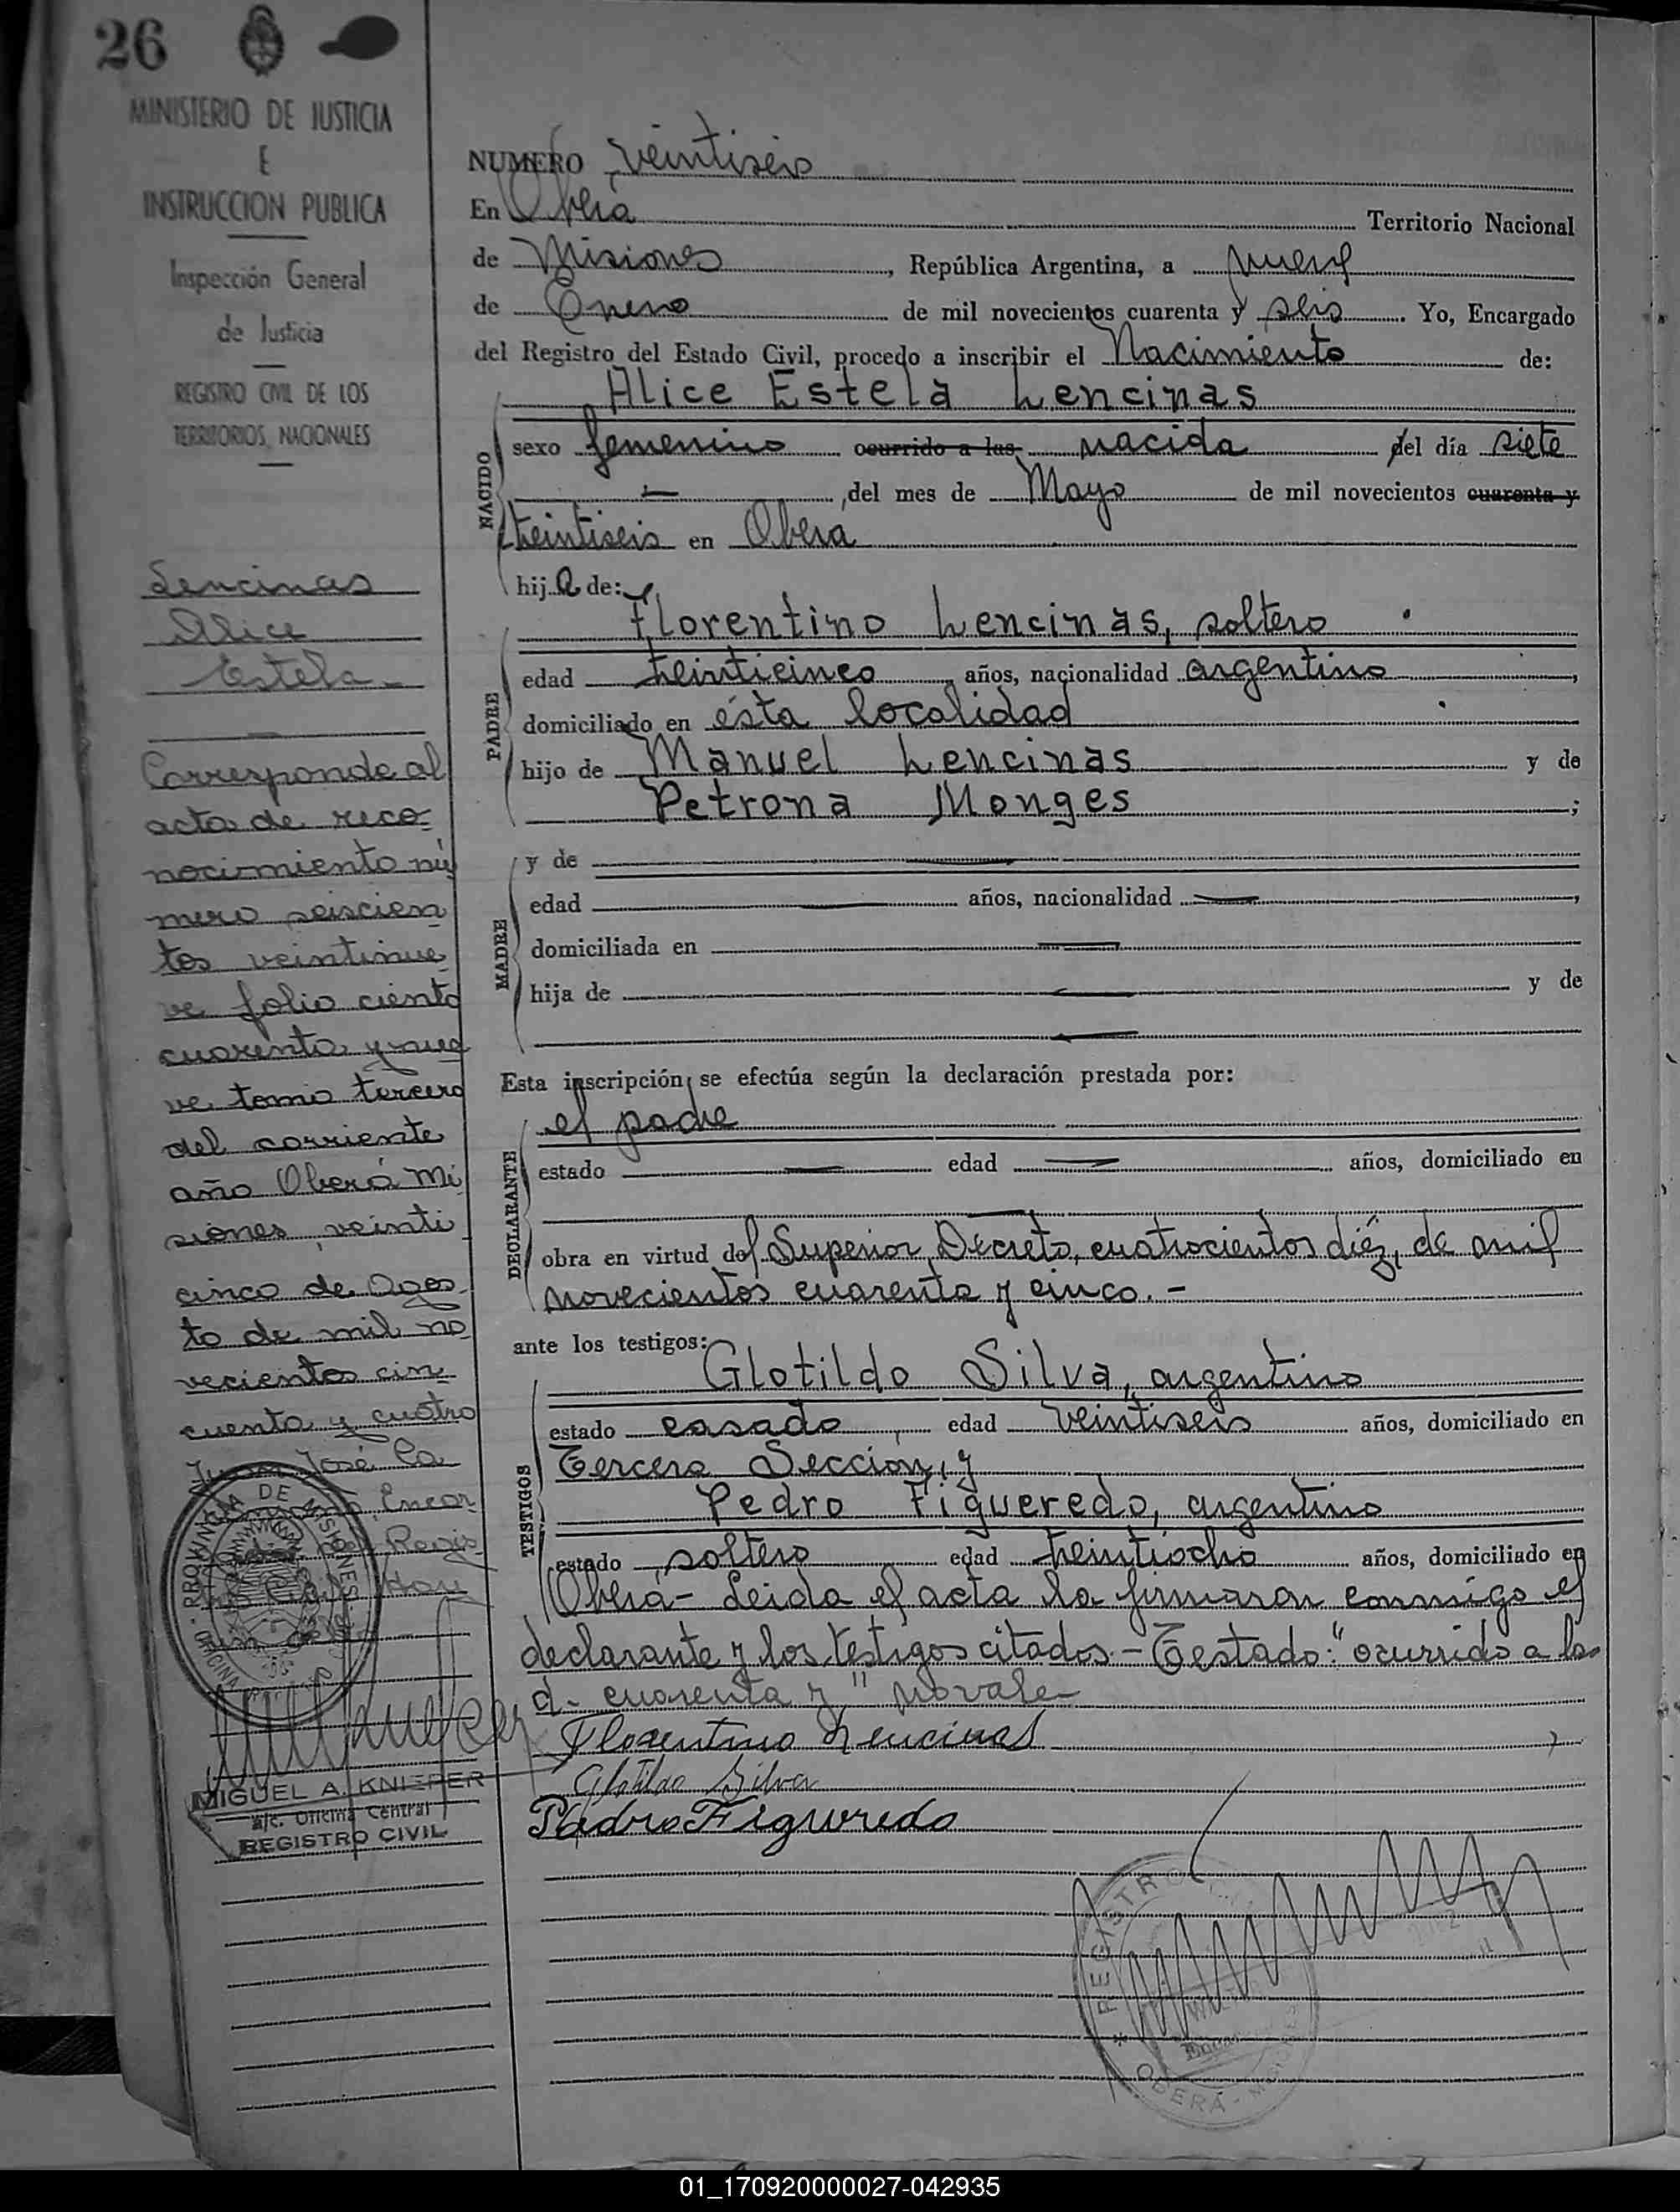 26
MINISTERIO DE JUSTICIA
E
INSTRUCCION PUBLICA
Inspección General
de Justicia
REGISTRO CIVIL DE LOS
TERRITORIOS NACIONALES
Lencinas
Alice
Estela
Corresponde al
acta de reco-
nocimiento nú
mero seiscien
tos veintinue
ve folio ciento
cuarenta y nue
ve tomo tercero
del corriente
año Oberá Mi
siones, veinti
cinco de Agos
to de mil no
vecientos cin
cuenta y cuatro
Juan José
Encar
Regis
PROVINCIA DE MISIONES
MIGUEL A. KNIEPER
a/c. Oficina Central
REGISTRO CIVIL
NUMERO veintiseis
En Oberá Territorio Nacional
de Misiones, República Argentina, a nueve
de Enero de mil novecientos cuarenta y seis. Yo, Encargado
del Registro del Estado Civil, procedo a inscribir el Nacimiento de:
Alice Estela Lencinas
NACIDO
sexo femenino ocurrido a las nacida del día siete
del mes de Mayo de mil novecientos cuarenta y
treintiseis en Obera
hija de:
Florentino Lencinas, soltero
PADRE
edad treinticinco años, nacionalidad argentino,
domiciliado en ésta localidad
hijo de Manuel Lencinas y de
Petrona Monges;
MADRE
y de
edad años, nacionalidad ,
domiciliada en
hija de y de
Esta inscripción se efectúa según la declaración prestada por:
el padre
DECLARANTE
estado edad años, domiciliado en
obra en virtud del Superior Decreto, cuatrocientos diéz, de mil
novecientos cuarenta y cinco.-
ante los testigos:
Glotildo Silva, argentino
TESTIGOS
estado casado, edad veintiseis años, domiciliado en
Tercera Sección, y
Pedro Figueredo, argentino
estado soltero edad treintiocho años, domiciliado en
Oberá- Leida el acta la firmaron conmigo el
declarante y los testigos citados- Testado: "ocurrido a las
d- cuarenta y" no vale-
Florentino Lencinas
Glotildo Silva
Pedro Figueredo
REGISTRO
OBERA - MISIONES
01_170920000027-042935